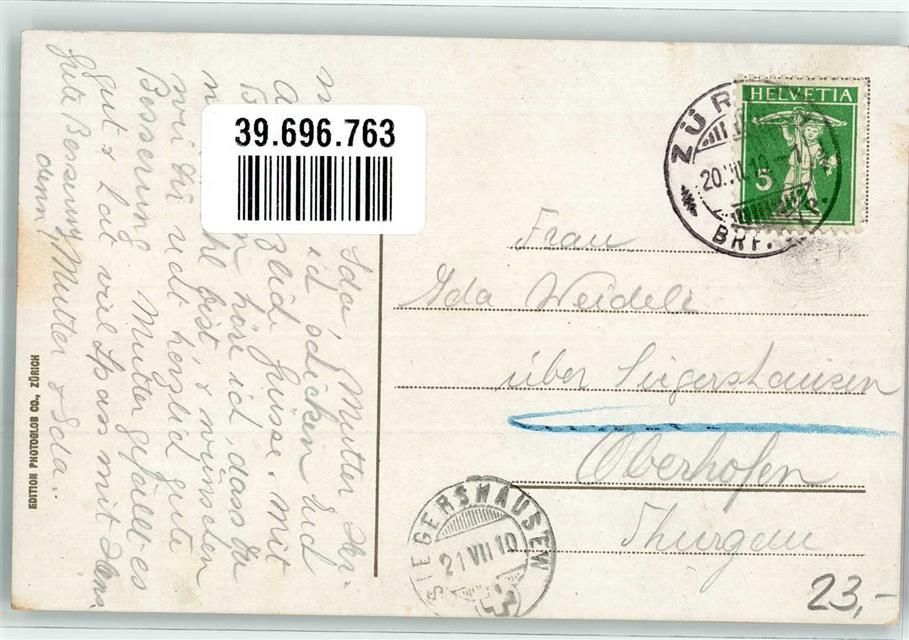 39.696.763
HELVETIA
5
ZÜR
20.VII.10
BRF.
Frau
Ida Weideli
über Siegershausen
Oberhofen
Thurgau
SIEGERSHAUSEN
21 VII 10
23,-
EDITION PHOTOGLOB CO., ZÜRICH
Ida, Mutter
id schicken Euch
Grüsse. Mit
höre id, dass du
bist, & wünschen
wir dir recht herzlich gute
Besserung. Mutter gefällt es
gut & hat viel Spass mit Hans
Gute Besserung Mutter & Ida.
denn